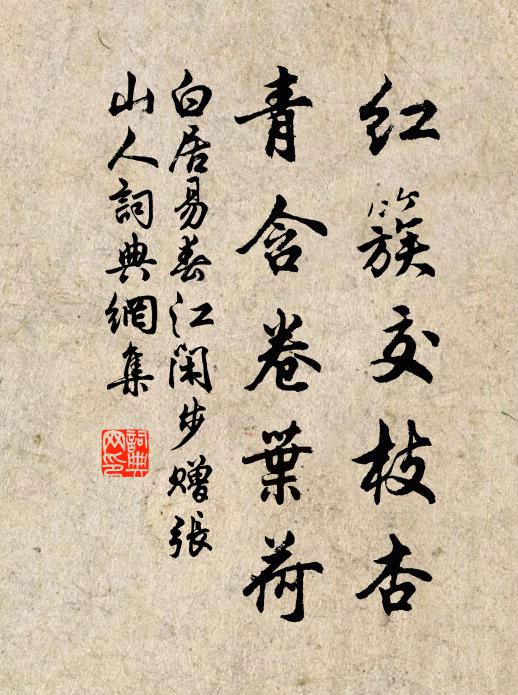 红簇交枝杏
青含卷葉荷
白居易春江闲步赠張
山人詞典網集
詞典
网印